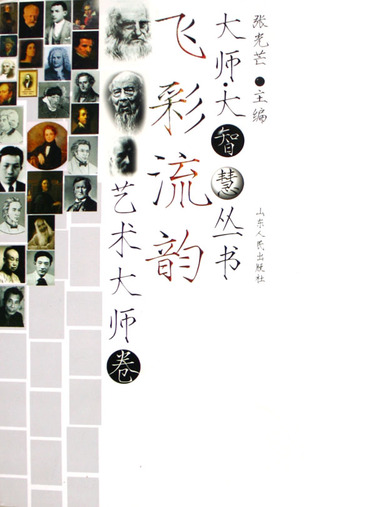 张光芒●主编
大师·大智慧丛书
山东人民出版社
飞彩流韵
艺术大师卷